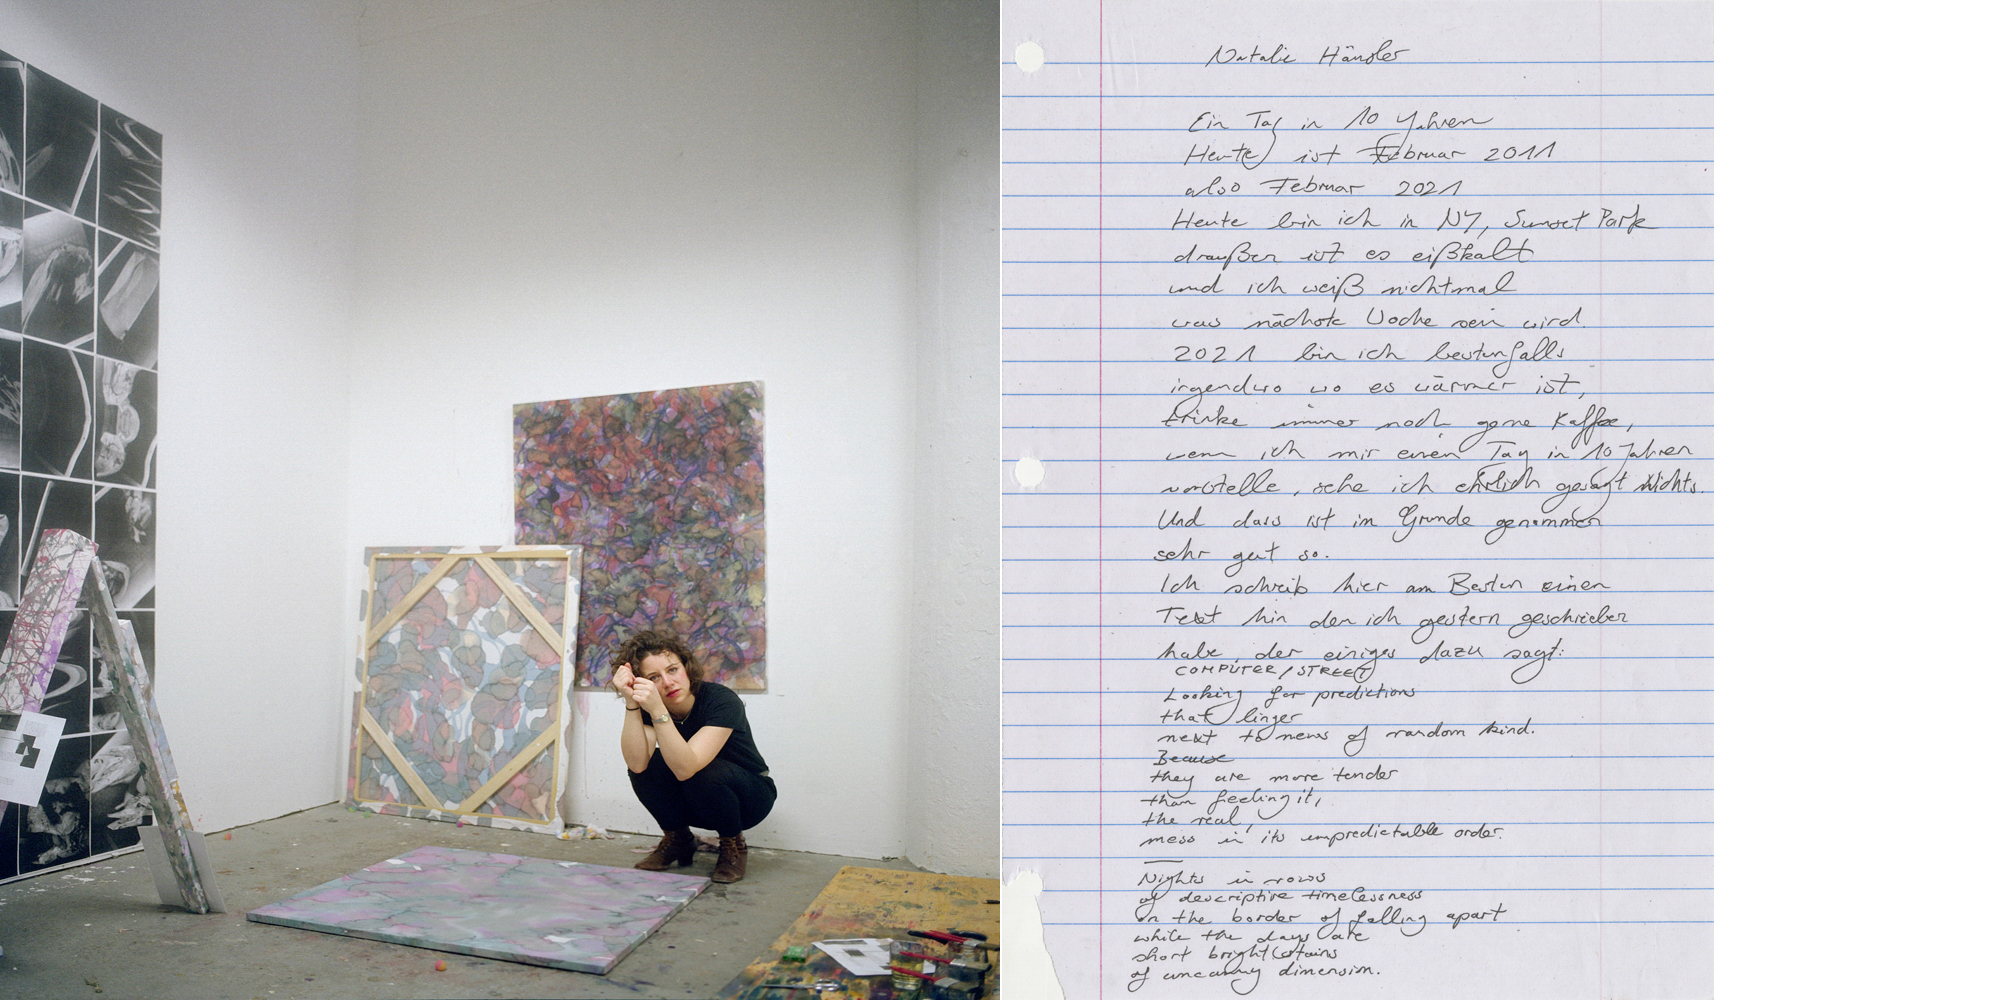 Natalie Häusler
Ein Tag in 10 Jahren
Heute ist Februar 2011
also Februar 2021
Heute bin ich in NY, Sunset Park
draußen ist es eißkalt
und ich weiß nichtmal
was nächste Woche sein wird.
2021 bin ich bestenfalls
irgendwo wo es wärmer ist,
trinke immer noch gerne Kaffee,
wenn ich mir einen Tag in 10 Jahren
vorstelle, sehe ich ehrlich gesagt Nichts.
Und dass ist im Grunde genommen
sehr gut so.
Ich schreib hier am Besten einen
Text hin den ich gestern geschrieben
habe, der einiges dazu sagt:
COMPUTER/STREET
Looking for predictions
that linger
next to news of random kind.
Because
they are more tender
than feeling it,
the real,
mess in its unpredictable order.
Nights in rows
of descriptive timelessness
on the border of falling apart
while the days are
short bright stains
of uncanny dimension.